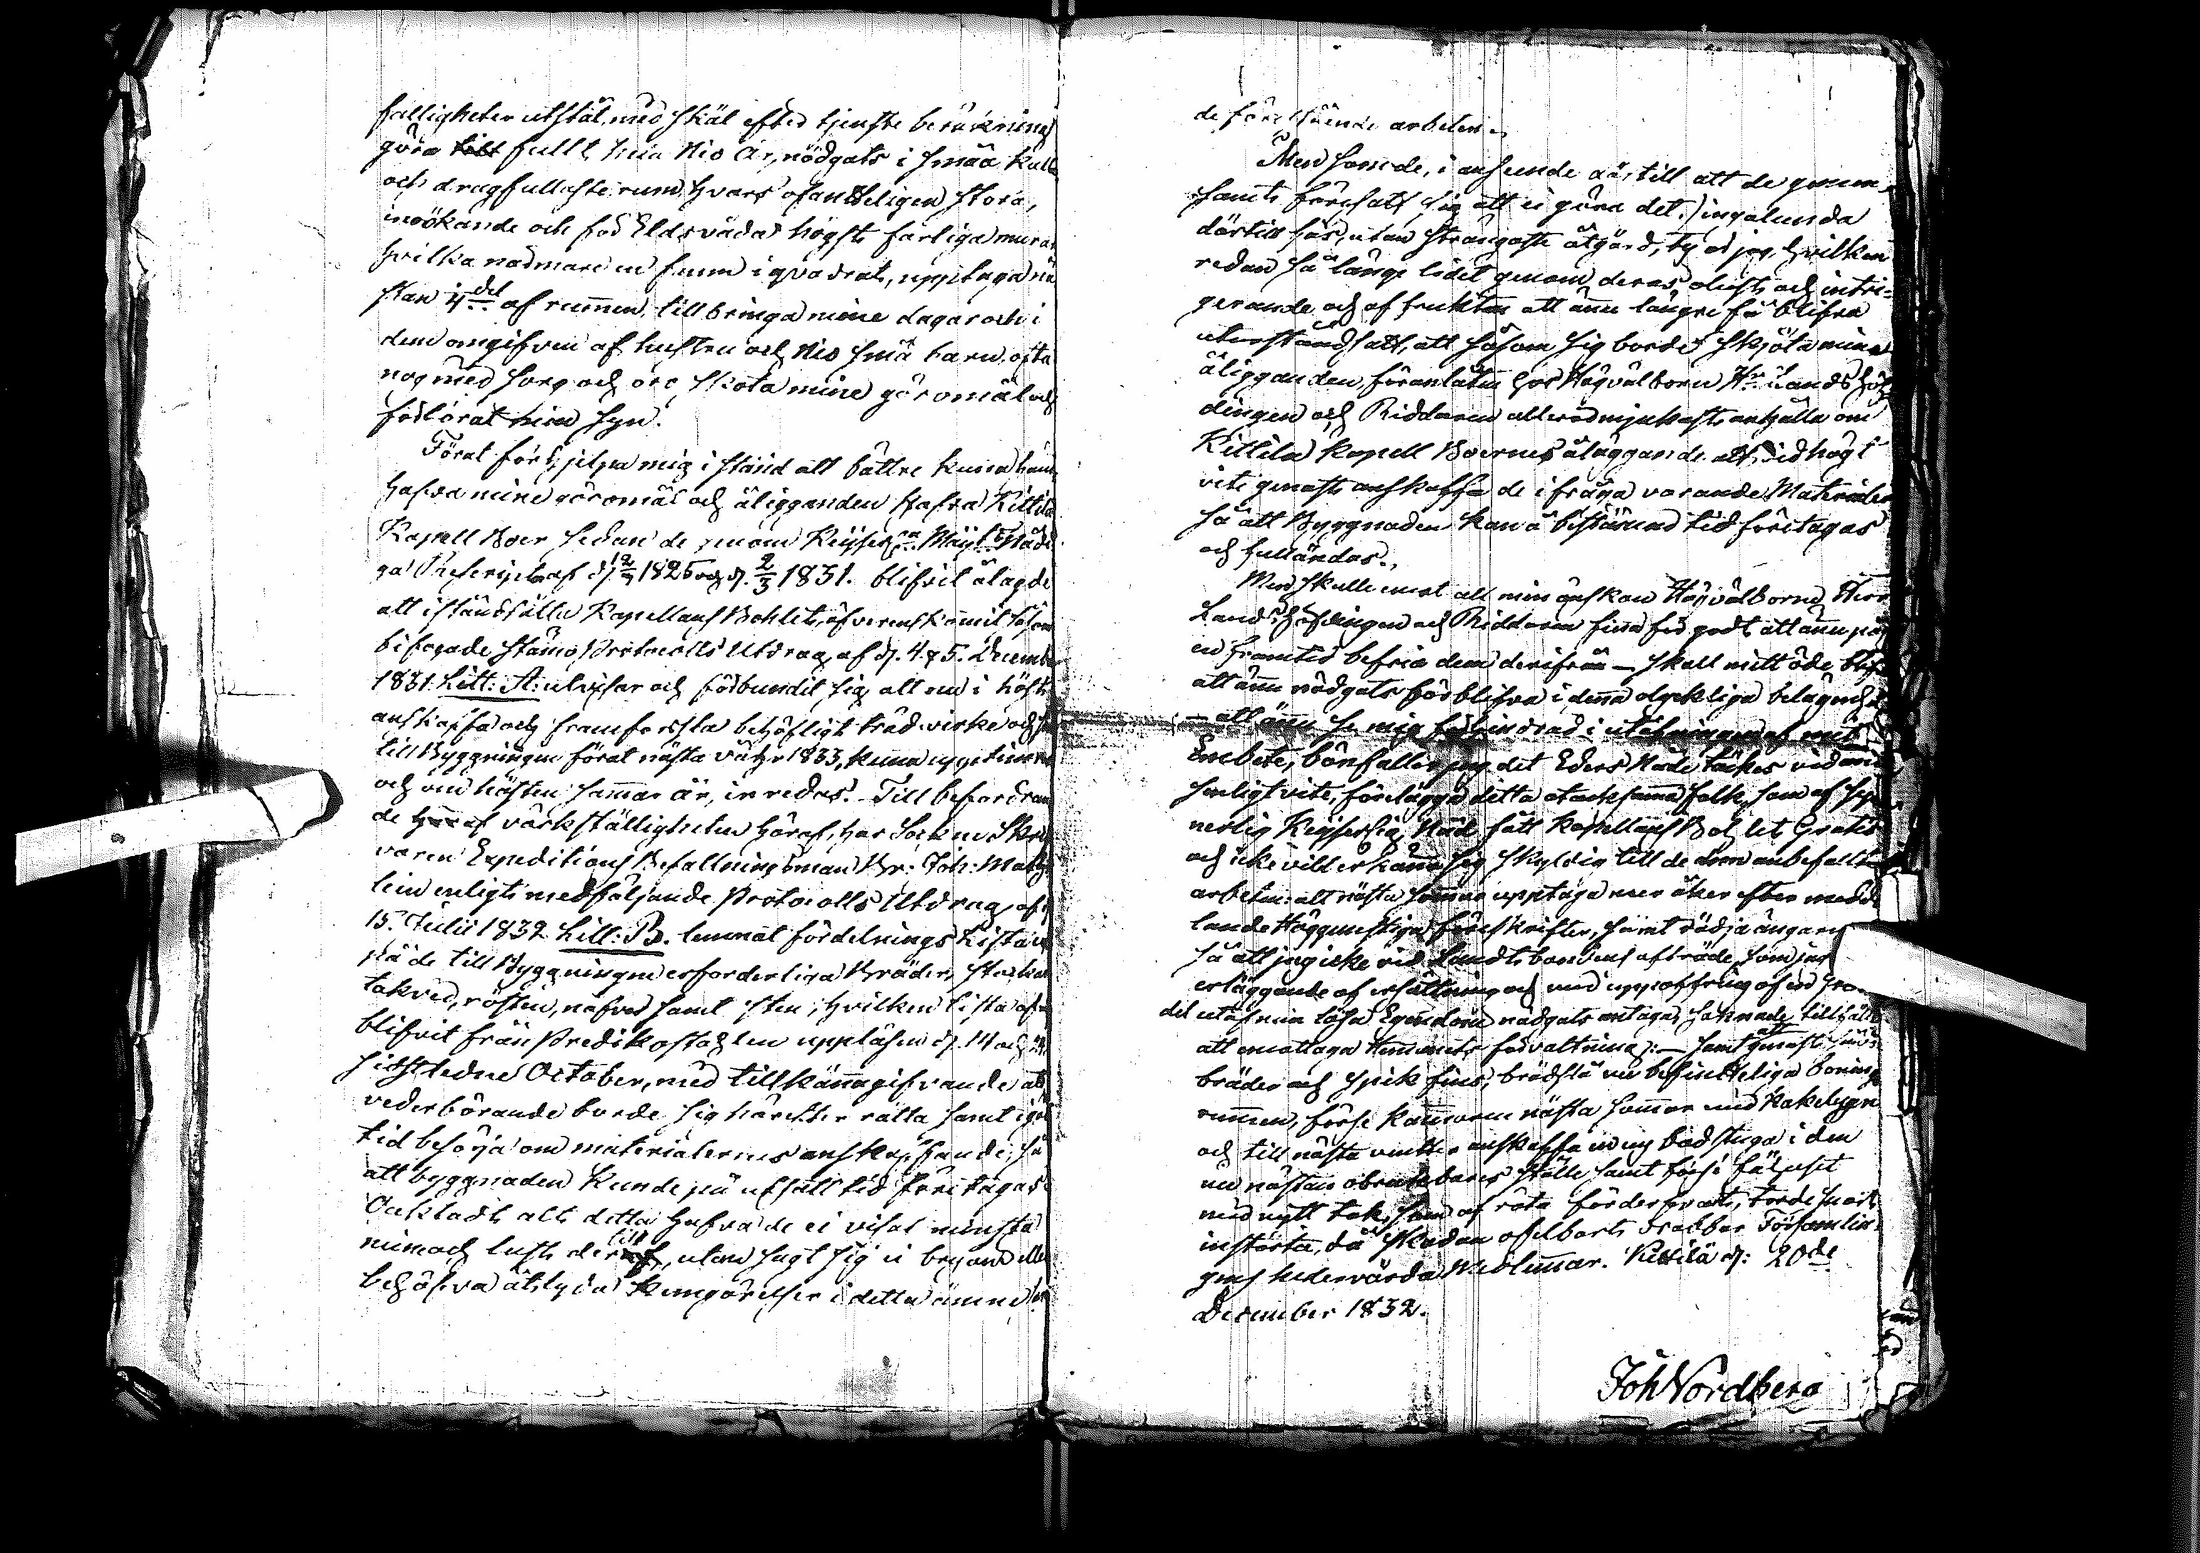 falligheter utstål, med skäl efter tjenste beräkning
göra till fullt hela Nio År, nödgats i små kall
och dragfullaste rum, hvars osanteligen stora,
inrökande och för Eldsvåda högst farliga murar
hvilka nadmare en famn i qvadrat, upptaga nä
stan ¼del af rummen, tillbringa mine dagar och i
dem omgifven af hustru och Nio små barn, ofta
nog med sorg och oro sköta mine göromål och
förlorat min syn.
Förat förhjelpa mig i stånd att bättre kunna hand
hafva mine göromål och åligganden hafva Kittilä
Kapell Boer sedan de genom Keijserna Maijts Nåd
ga Rescripter af d. 2/9 1825 och d. 2/3 1831. blifvit ålagde
att iståndsätta Kapellans Bohlet, öfverenskommit såsom
bifogade stämo Protocolls Utdrag af d. 4 & 5. December
1831. Litt: A: utvisar och förbundit sig att nu i höst
anskaffa och framforsla behöfligt träd virke och
till Byggningen förat nästa vår 1833, kunna upptimra
och om hösten samma år, inredas. Till befordran
de af värkställigheten häraf, har Sockne Skrif
varen Expeditions Befallningsman Hr: Joh: Math
lein enligt medföljande Protocolls Utdrag af
15. Julii 1832 Litt: B. lemnat fördelnings Lista
på de till Byggningen erforderliga Bräder, stockar
takved, rösten, näfver samt sten; hvilken Lista
blifvit från Predikostohlen uppläsen d. 14 och 21
sidstledne October, med tillkännagifvande att
vederbörande borde sig härefter rätta samt i god
tid besörja om materialiernes anskaffande, så
att byggnaden kunde på utsatt tid företagas.
Oaktadt alt detta hafva de ei visat minsta
min och lust dertill, utan sagt sig ei bry om eller
behöfva åtlyda kungörelser i detta ämne
de förestående arbeten.
Men som de, i anseende där till att de gemen
samt föresatt sig att ei göra det, ingalunda
därtill fås, utan strängaste åtgärd, ty er jag, hvilken
redan så länge lidit genom deras olust och intri=
gerande och af fruktan att ännu längre få blifva
uterståndsatt, att såsom sig borde skjöta mina
åligganden, föranlåten hos Högvälborn Hr Landshöf
dingen och Riddaren allerödmjukast anhålla om
Kittilä Kapell Boernes åläggande att vid högt
vite genast anskaffa de i fråga varande Materialier
så att Byggnaden kan å bestämd tid företagas
och fulländas.,
Men skulle emot all min önskan Högvälborne Herr
Landshöfdingen och Riddaren finna för godt att ännu på
en framtid befria dem derifrån — skall mitt öde blifva
att ännu nödgats förblifva i denna olyckliga belägenhet
— att ännu se mig förhindrad i utöfningen af mitt
Embete, bönfaller jag det Eders Nåde täckes vid
senligt vite, förelägga detta otacksamma folk, som af syn
nerlig Keijserlig Nåd fått Kapellans Bohlet Gratis
och icke vill erkänna sig skyldig till de dem anbefallde
arbeten: att nästa sommar upptaga mer åker efter medde
lande Höggunstiga föreskrifter, samt rödja ängarne
så att jag icke vid Landtbondens afträde, som jag
erläggande af ersättning och med uppoffring af
del utaf min lösa Egendom nödgats antaga, saknade tillfälle
att emottaga Hemmanets förvaltning): — samt att genast
bräder och spik fins, brädslå nu befinteliga bonings
rummen, förse kammaren nästa sommar med Kakelugn
och till nästa vinter anskaffa en ny badstuga i den
nu nästan obrukbares ställe samt förse fähuset
med nytt tak, som af röta förderfvats, torde snart
instörta, då skadan ofelbart drabbar Församlin=
gens hedervärda Medlemmar. Kittilä d: 20de
December 1832.
Joh Nordberg